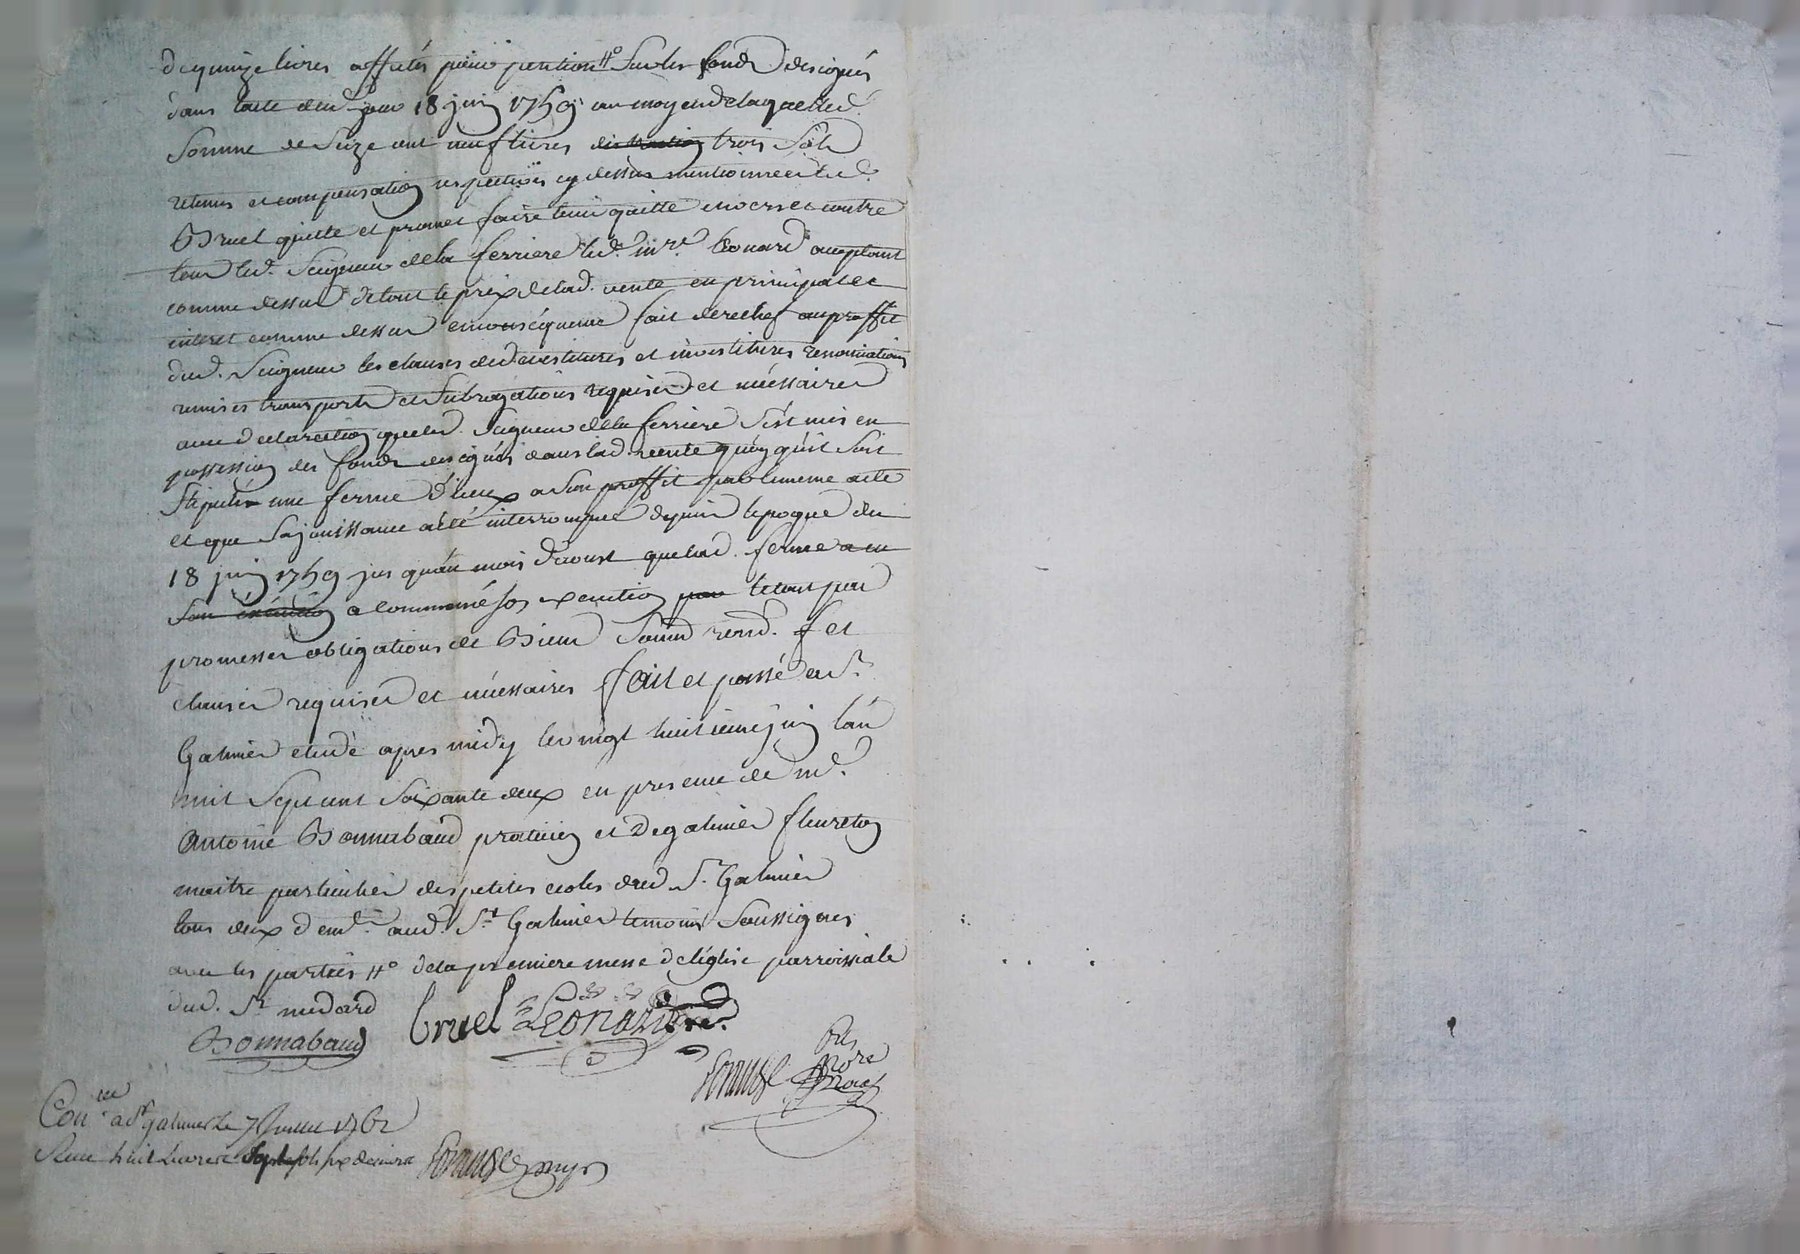 de quinze livres affectés pour pention #° sur les fonds designés
dans l'acte dud. jour 18 juin 1759 au moyen de laquelle d.
somme de seize cent neuf livres trois sols
retenus et compensation respectives cy dessus mentionnée led.
Bruel quitte et promet faire tenir quitte envers et contre
tous led. Seigneur de la ferriere led. mre. Leonard acceptant
comme dessus de tout le prix de lad. vente en principal et
interet comme dessus en consequence fait derechef au proffit
dud. Seigneur les clauses de devestitures et investitures renonciations
remises transports et subrogations requises et nécessaires
avec declaration que led. Seigneur de la ferriere s'est mis en
possession des fonds designés dans lad. vente quoy qu'il soit
stipulé une ferme d'iceux a son proffit par le meme acte
et que sa jouissance a été interrompue depuis l'epoque du
18 juin 1759 jusqu'au mois d'aoust que lad. ferme a eu
son execution a commencé son execution pour le tout par
promesses obligations de Biens soumd. rend. f et
clauses requises et nécessaires fait et passé a St.
Galmier etude apres midy le vingt huitieme juin l'an
mil sept cent soixante deux en presence de me.
Antoine Bonnabaud praticien et De galmier fleureton
maitre particulier des petites ecoles dud. St. Galmier
tous deux demts. aud. St Galmier temoins soussignés
avec les parties #° de la premiere messe de l'église parroissiale
dud. St medard
Bonnabaud Bruel Leonard
Conlle. a St galmier le 7 Juillet 1762
Reçu huit livres sept sols six deniers